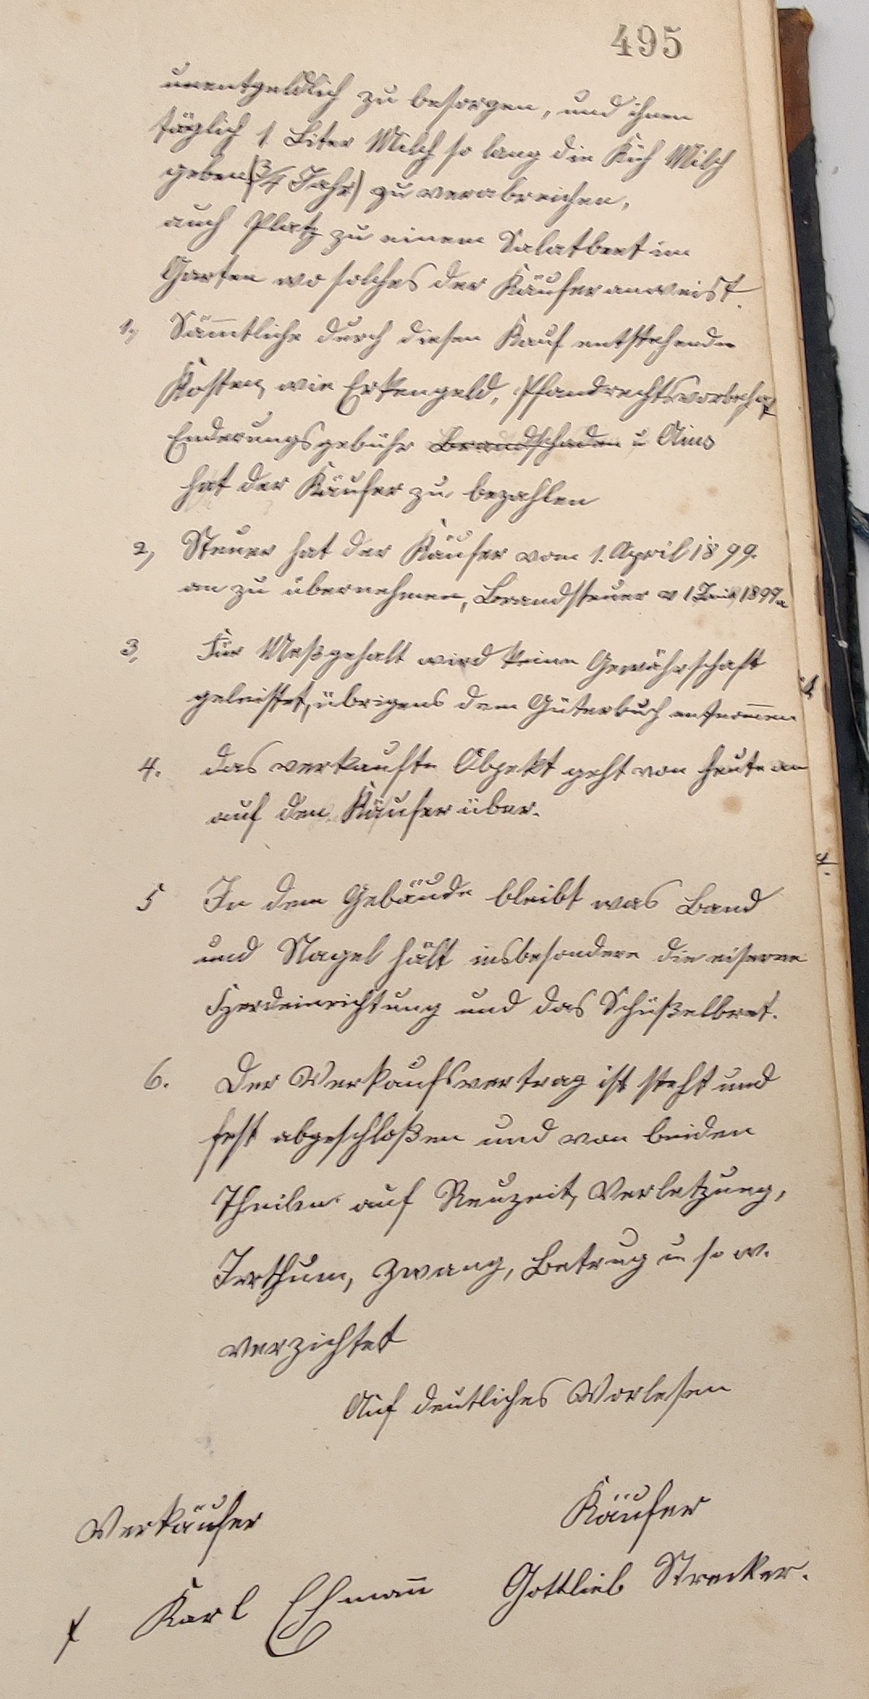 495
unentgeldlich zu besorgen, und ihnen
täglich 1 Liter Milch so lang die Kuh Milch
geben (3/4 Jahr) zu verabreichen,
auch Platz zu einem Salatbeet im
Garten wo solches der Käufer anweist.
1, Sämmtliche durch diesen Kauf entstehende
Kosten, wie Erkengeld, Pfandrechtsvorbehalt
Enderungsgebühr Brandschaden u
hat der Käufer zu bezahlen
2, Steuer hat der Käufer vom 1. April 1899.
an zu übernehmen, Brandsteuer v 1 1899.
3, Für Meßgehalt wird keine Gewährschaft
geleistet, übrigens dem Güterbuch entnommen
4. das verkaufte Objekt geht von heute an
auf den Käufer über.
5 In dem Gebäude bleibt was Band
und Nagel hält insbesondere die eiserne
Herdeinrichtung und das Schüßelbret.
6. Der Verkaufsvertrag ist steht und
fest abgeschloßen und von beiden
Theilen auf Reuzeit, Verletzung,
Irrthum, Zwang, Betrug u. s. w.
verzichtet
Auf deutliches Vorlesen
Verkäufer Käufer
Karl Ehmann Gottlieb Strecker.